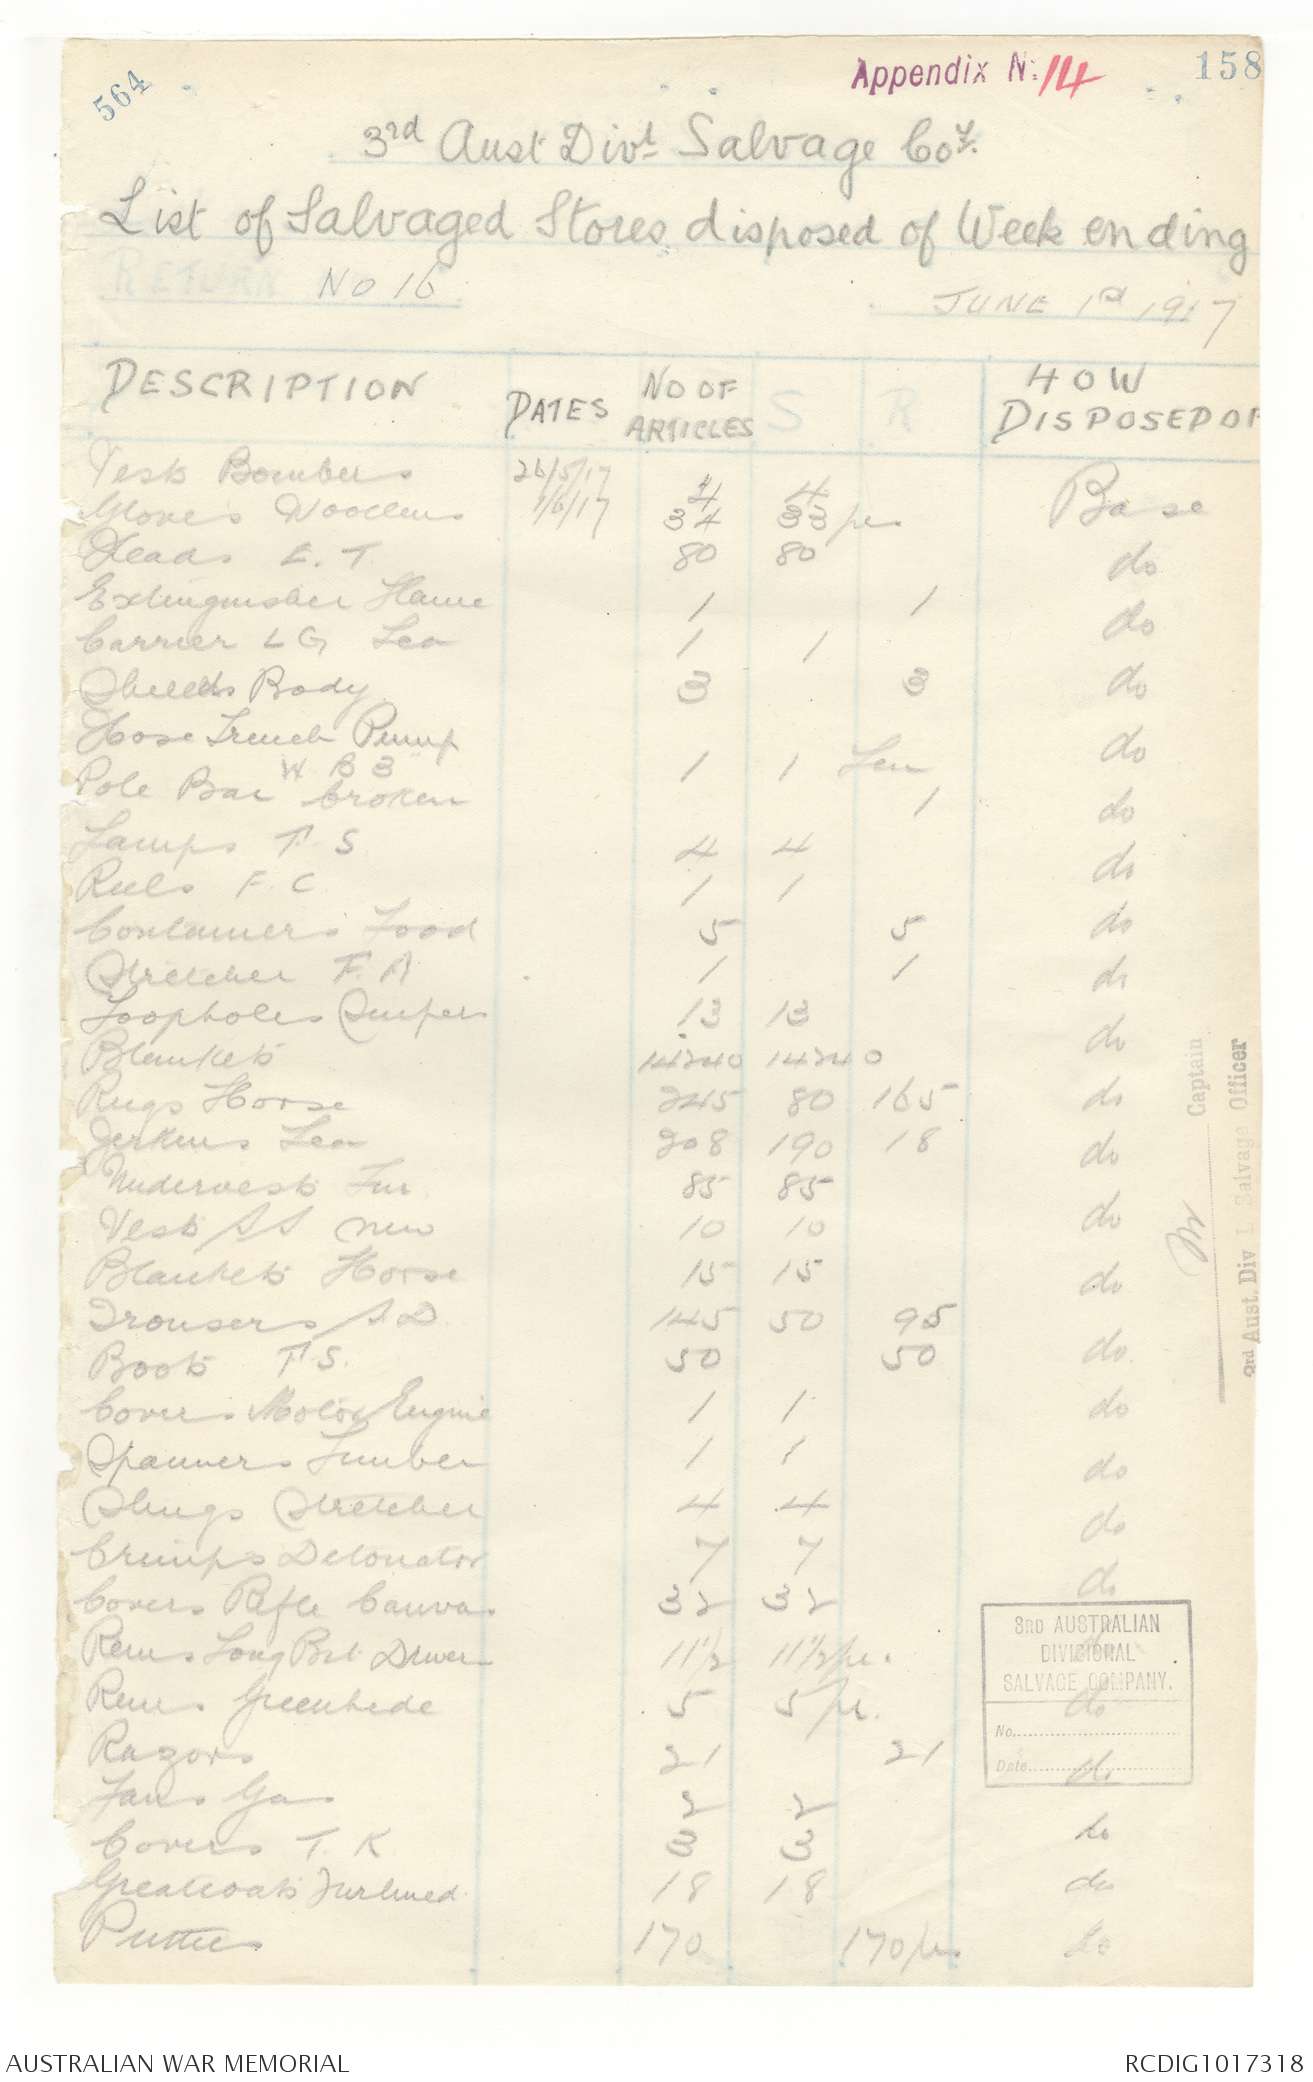 564
Appendix No: 14
158
3rd Aust Divl Salvage Coy.
List of Salvaged Stores disposed of Week ending
RETURN NO 16 JUNE 1st 1917
DESCRIPTION DATES NO OF ARTICLES S R HOW DISPOSED OF
Vests Bombers 26/5/17 4 4 Base
Gloves Woollens 1/6/17 34 33 prs
Heads E. T. 80 80 do
Extinguisher Flame 1 1 do
Carrier L G Lea 1 1
Shields Body 3 3 do
Hose Trench Pump 1 1 Len do
Pole Bar W B B broken 1 do
Lamps F. S 4 4 do
Reels F. C 1 1
Containers Food 5 5 do
Stretcher F. A 1 1 do
Loopholes Snipers 13 13
Blankets 14240 14240 do
Rugs Horse 245 80 165 do
Jerkins Lea 208 190 18 do
Undervests Fur 85 85
Vests S S new 10 10 do
Blankets Horse 15 15 do
Trousers S D. 145 50 95
Boots F. S. 50 50 do
Covers Motor Engine 1 1 do
Spanners Limber 1 1 do
Slings Stretcher 4 4 do
Crimps Detonator 7 7 do
Covers Rifle Canvas 32 32
Reins Long Bit Driven 11 1/2 11 1/2 pr. do
Reins Greenhide 5 5 pr. do
Razors 21 21 do
Fans Gas 2 2 do
Covers T. K 3 3
Greatcoats Furlined 18 18 do
Puttees 170 170 prs do
Captain
3rd Aust. Div L Salvage Officer
3RD AUSTRALIAN
DIVISIONAL
SALVAGE COMPANY.
No.
Date
AUSTRALIAN WAR MEMORIAL
RCDIG1017318